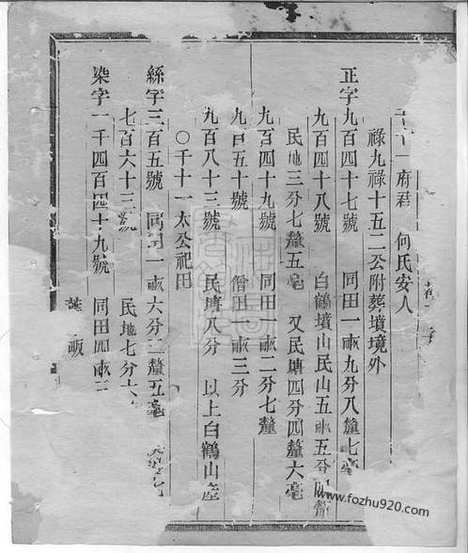 府君 何氏安人
祿九祿十五二公附葬墳境外
正字九百四十七號 同田一畝九分八釐七毫
九百四十八號 白鶴墳山民山五畝五分四釐
民地三分七釐五毫 又民塘四分四釐六毫
九百四十九號 同田一畝二分七釐
九百五十號 僧田一畝三分
九百八十三號 民塘八分 以上白鶴山
○千十一太公祀田
絲字三百五號 同田一畝六分二釐五毫
七百六十三號 民地七分六
染字一千四百四十九號 同田四畝二
www.fozhu920.com